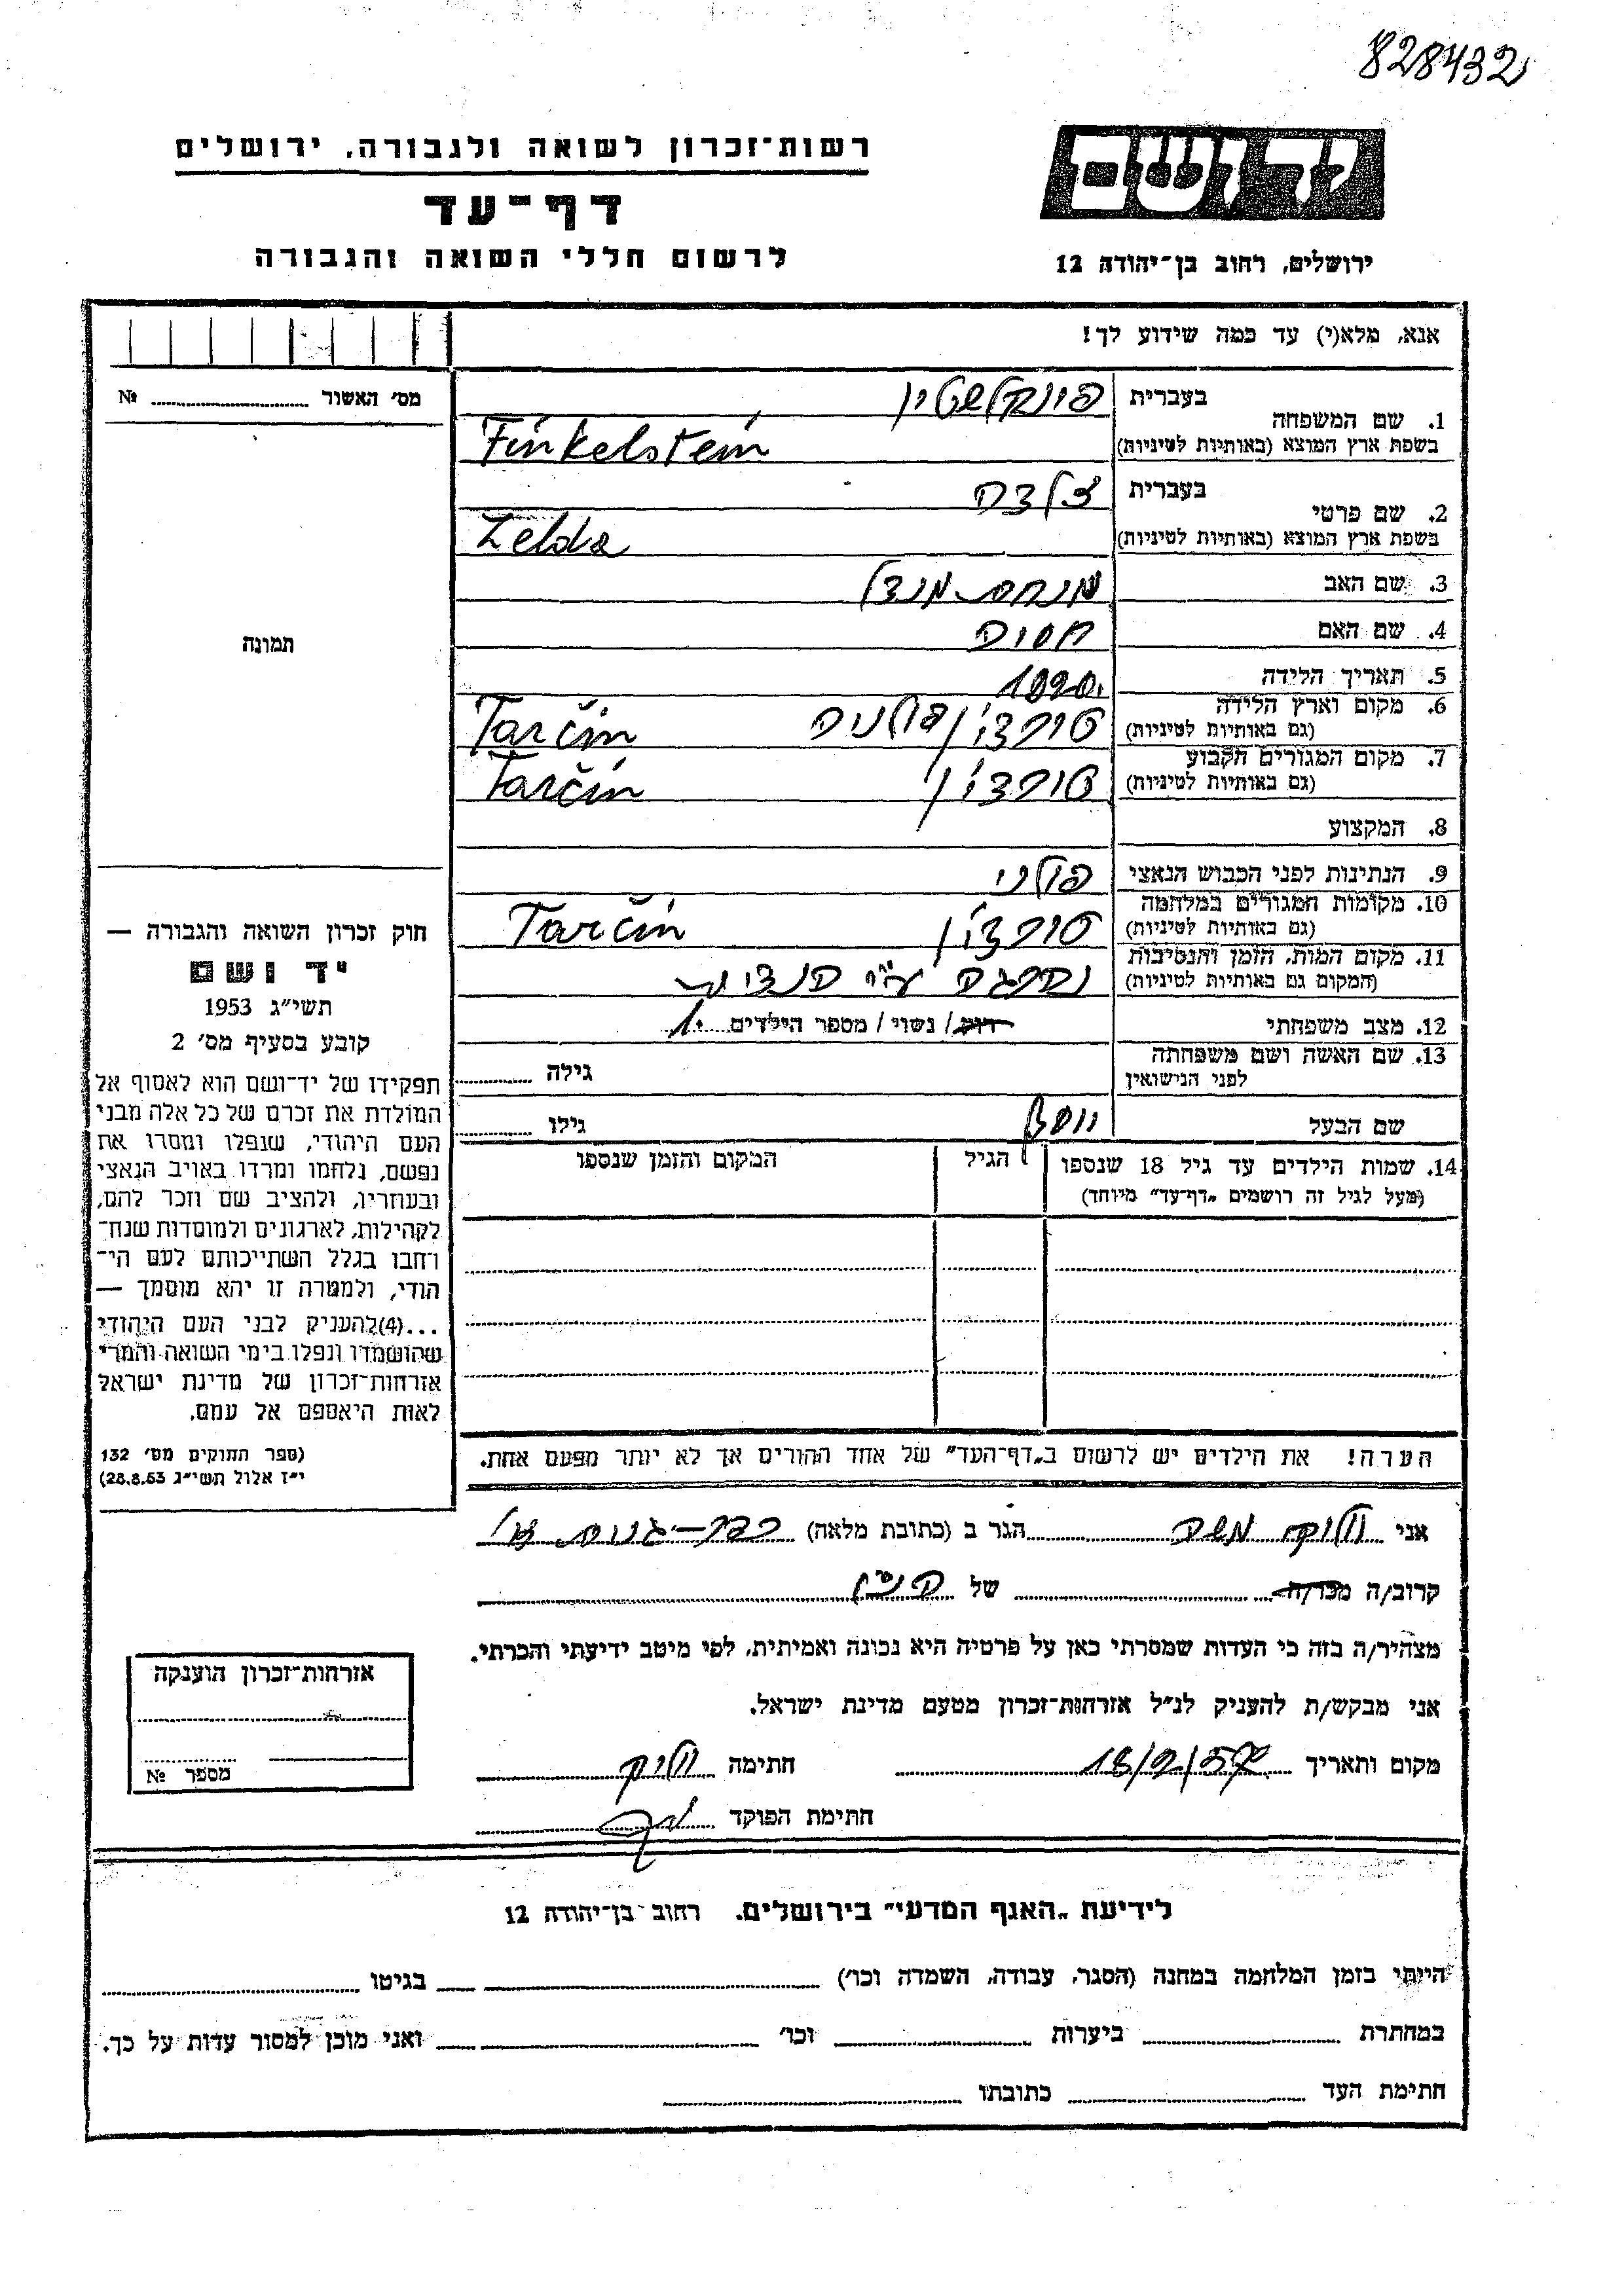 828432
רשות־זכרון לשואה ולגבורה, ירושלים
דף־עד
לרשום חללי השואה והגבורה
יד ושם
ירושלים, רחוב בן־יהודה 12
אנא, מלא(י) עד כמה שידוע לך!
מס' האשור № 
תמונה
חוק זכרון השואה והגבורה —
יד ושם
תשי״ג 1953
קובע בסעיף מס' 2
תפקידו של יד־ושם הוא לאסוף אל
המולדת את זכרם של כל אלה מבני
העם היהודי, שנפלו ומסרו את
נפשם, נלחמו ומרדו באויב הנאצי
ובעוזריו, ולהציב שם וזכר להם,
לקהילות, לארגונים ולמוסדות שנח־
רחבו בגלל השתייכותם לעם הי־
הודי, ולמטרה זו יהא מוסמך —
...(4)להעניק לבני העם היהודי
שהושמדו ונפלו בימי השואה והמרי
אזרחות־זכרון של מדינת ישראל
לאות היאספם אל עמם.
(ספר החוקים מס' 132
י״ז אלול תשי״ג 28.8.53)
בעברית פינקלשטין
1. שם המשפחה
בשפת ארץ המוצא (באותיות לטיניות) Finkelstein
בעברית זלדה
2. שם פרטי
בשפת ארץ המוצא (באותיות לטיניות) Zelda
3. שם האב מנחם-מנדל
4. שם האם חסיה
5. תאריך הלידה
6. מקום וארץ הלידה
(גם באותיות לטיניות) טורצ'ין פולניה Tarčin
7. מקום המגורים הקבוע
(גם באותיות לטיניות) טורצ'ין Tarčin
8. המקצוע
9. הנתינות לפני הכבוש הנאצי פולני
10. מקומות המגורים במלחמה
(גם באותיות לטיניות) טורצ'ין Tarčin
11. מקום המות, הזמן והנסיבות
(המקום גם באותיות לטיניות) נהרגה ע״י הנצים
12. מצב משפחתי רווק / נשוי / מספר הילדים 1.
13. שם האשה ושם משפחתה
לפני הנישואין גילה
שם הבעל יוסף גילו
14. שמות הילדים עד גיל 18 שנספו הגיל המקום והזמן שנספו
(מעל לגיל זה רושמים „דף־עד״ מיוחד)
הערה! את הילדים יש לרשום ב„דף־העד״ של אחד ההורים אך לא יותר מפעם אחת.
אני משה הגר ב (כתובת מלאה) כפר-גנים
קרוב/ה מכר/ה של
מצהיר/ה בזה כי העדות שמסרתי כאן על פרטיה היא נכונה ואמיתית, לפי מיטב ידיעתי והכרתי.
אני מבקש/ת להעניק לנ״ל אזרחות־זכרון מטעם מדינת ישראל.
מקום ותאריך חתימה
חתימת הפוקד
אזרחות־זכרון הוענקה
מספר №
לידיעת „האגף המדעי״ בירושלים. רחוב בן־יהודה 12
הייתי בזמן המלחמה במחנה (הסגר, עבודה, השמדה וכו') בגיטו
במחתרת ביערות וכו' ואני מוכן למסור עדות על כך.
חתימת העד כתובתו